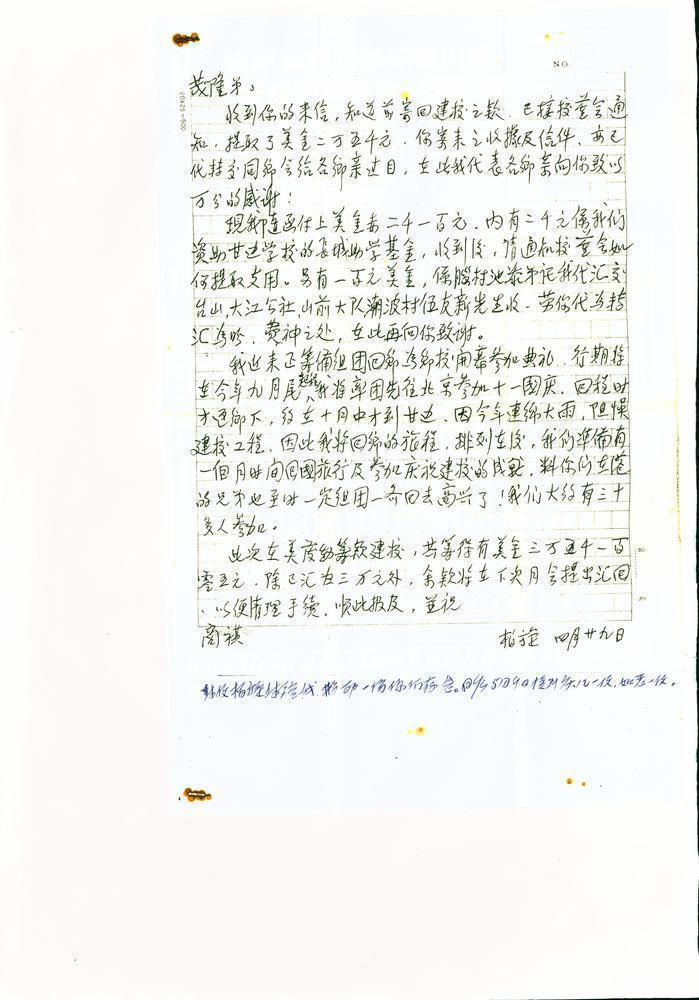 NO.
20X25=500
茂隆弟、
收到你的来信，知道前寄回建校之款，已接校董会通
知，提取了美金二万五千元，你寄来之收據及信件，亦已
代转交同鄉会给各鄉亲过目，在此我代表各鄉亲向你致以
万分的感谢！
现我随函付上美金二千一百元，内有二千元係我们
资助甘边学校的長城助学基金，收到後，请通知校董会如
何提取支用。另有一百元美金，係
台山大江公社山前大队潮波村伍友新先生收，劳你代为转
汇为盼，费神之处，在此再向你致谢。
我近来正筹備组团回鄉为鄉校開幕参加典礼，行期将
在今年九月尾起程，我将率团先往北京参加十一國庆，回程时
才返鄉下，约在十月中才到甘边，因今年連綿大雨，阻慢
建校工程，因此我将回鄉的旅程，排列在後，我们準備有
一個月时间回國旅行及参加庆祝建校的盛典，料你们在港
的兄弟也至时一定组团一齐回去高兴了！我们大约有三十
多人参加。
此次在美发动筹款建校，共筹得有美金三万五千一百
零五元，除已汇去三万元外，余款将在下次月会提出汇回
，以便清理手续，順此报及，並祝
商祺
柏旋 四月廿九日